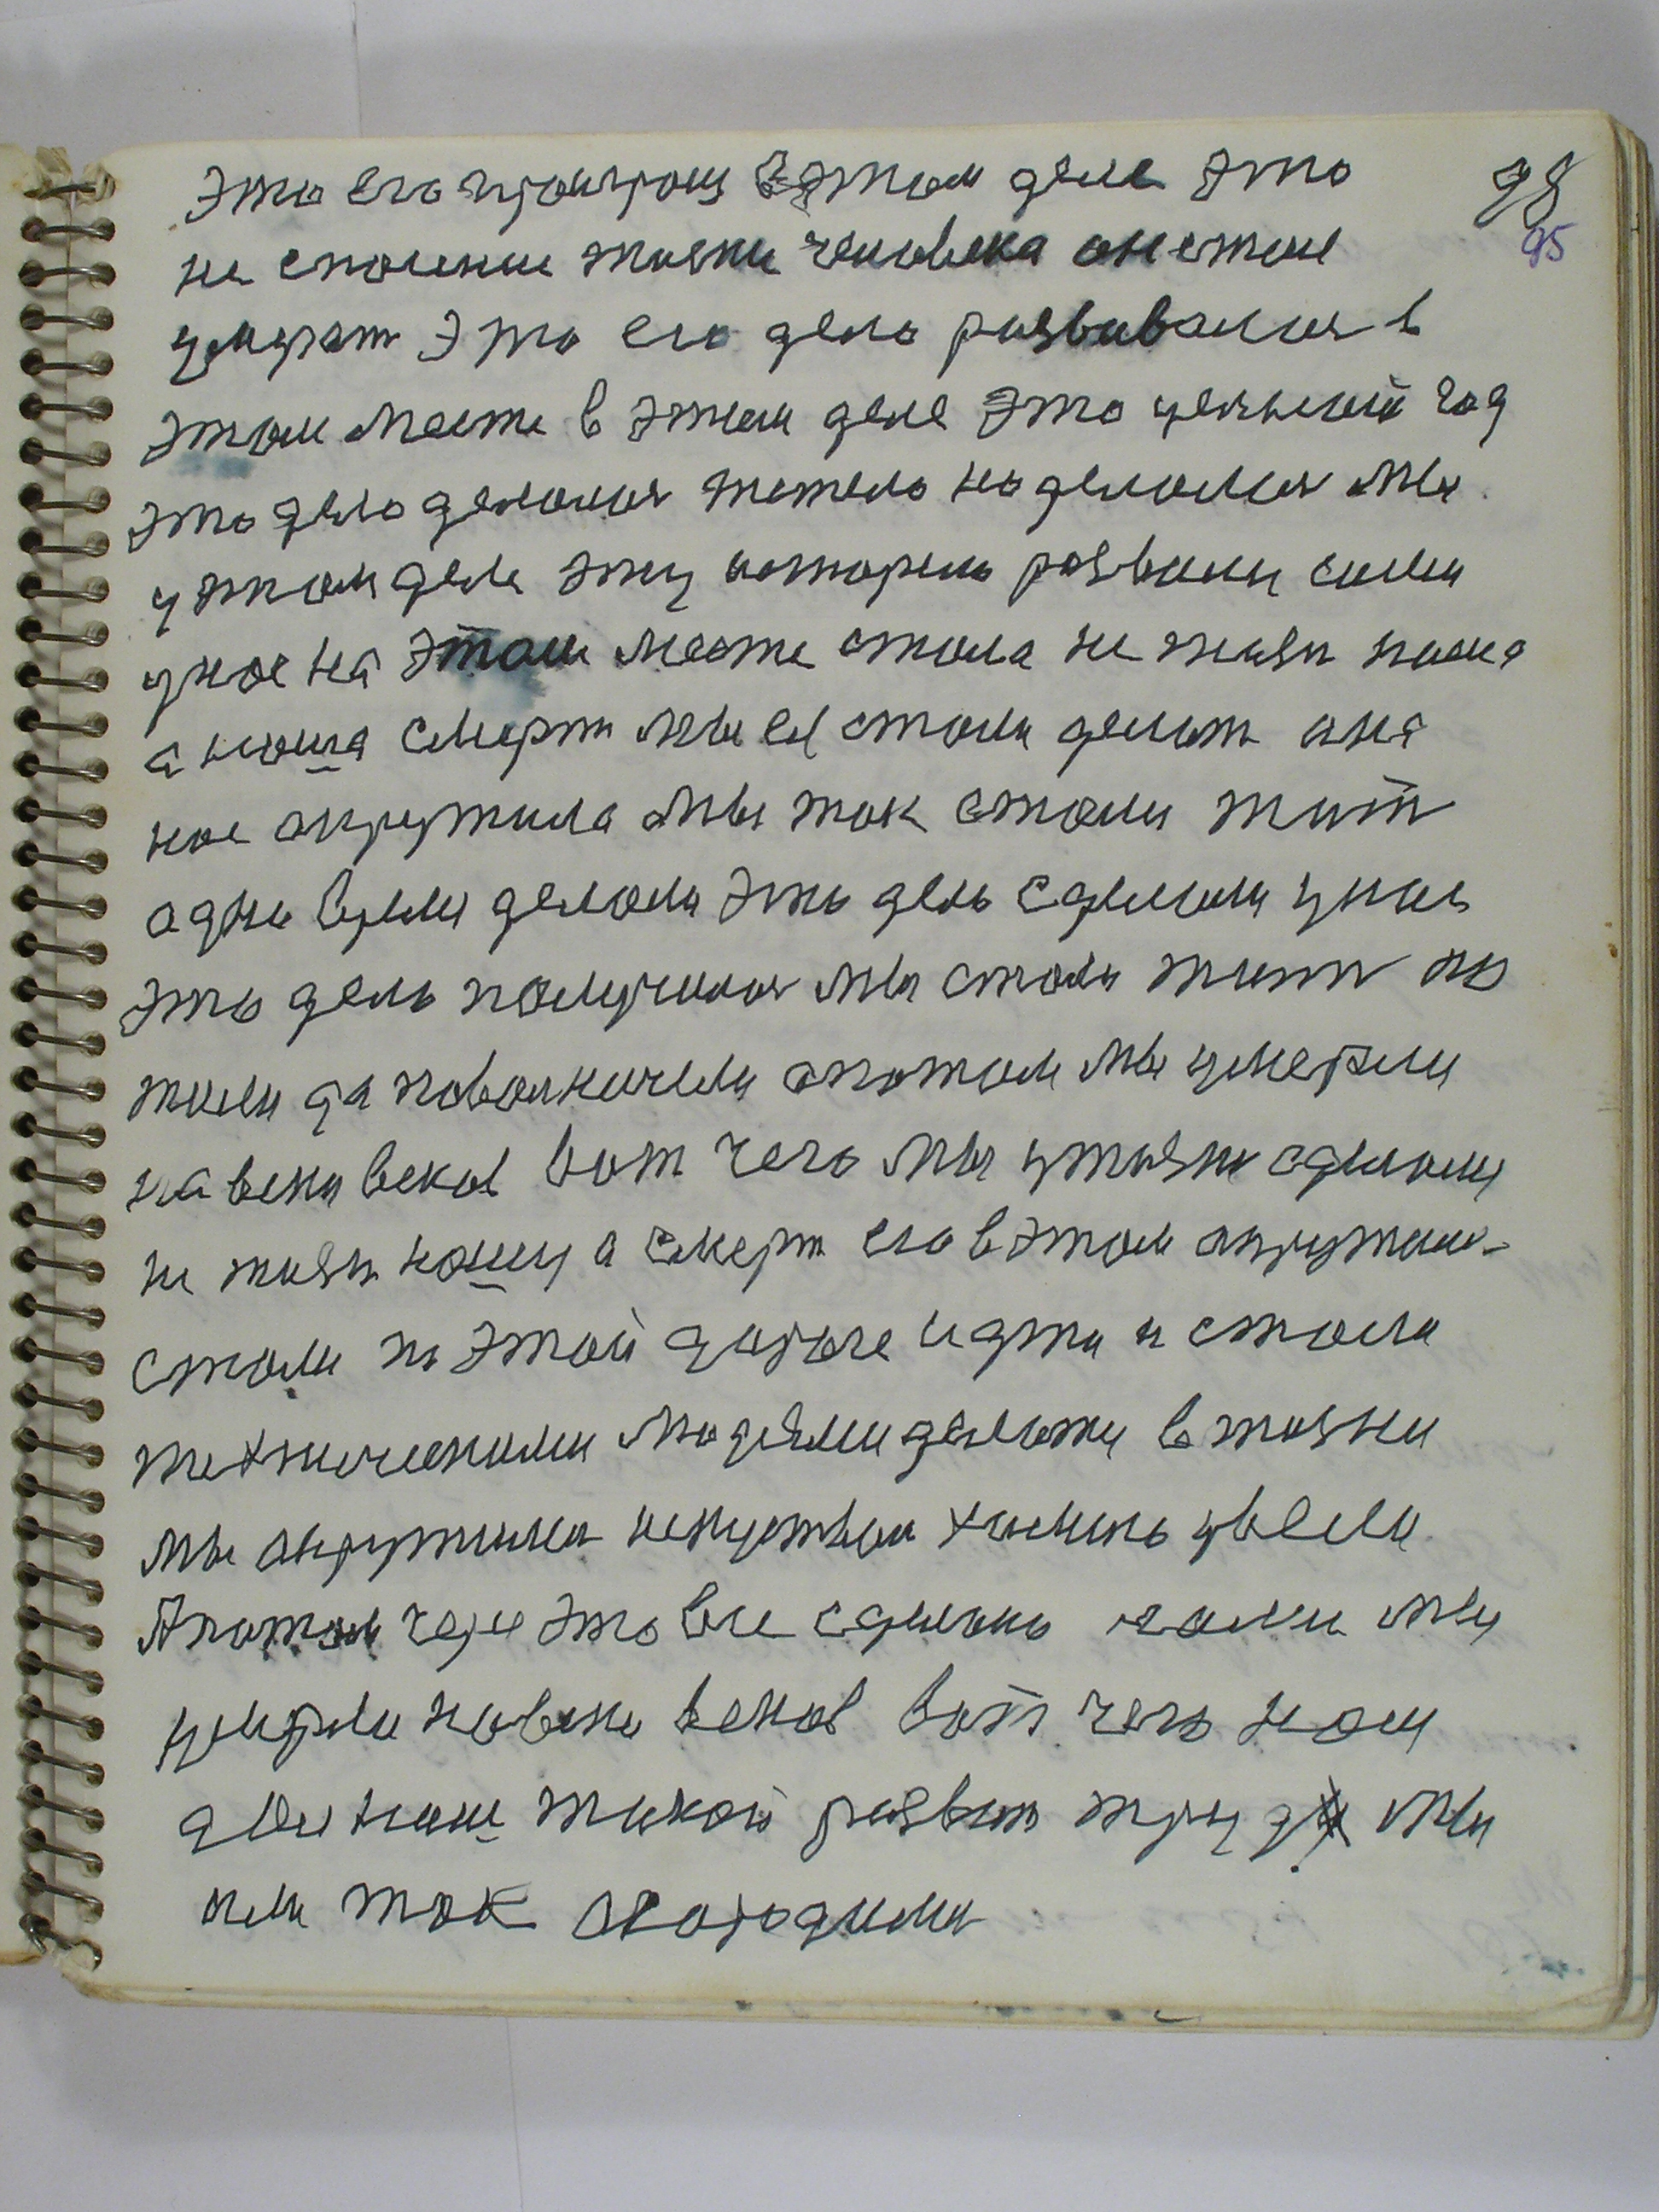 это его проигрош в этом деле это
не споиние жизни человека он стал
умират это его дело развивался в
этом месте в этом деле это цельный год
это дело делался тежело но делался мы
у этом деле эту историю развили сами
у нас на этом месте стала не жизн наша
а наша смерт мы её стали делат она
нас окружила мы так стали жит
одне время делали это дело сделали у нас
это дело получился мы стали жит по
жили да поволничели а потом мы умерли
на веки веков вот чего мы у жизни сделали
не жизн нашу а смерт его в этом окружили
стали по этой дороге идти и стали
техническими людями делами в жизни
мы окружили искуство химию ували
А потом через это все сделано нами мы
умерли на веки веков вот чего нам
дал наш такой развит труд мы
им так огородили
98
95